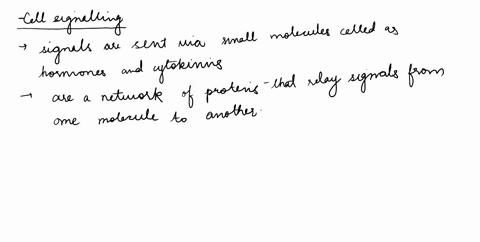 -Cell signalling
→ signals are sent via small molecules called as
hormones and cytokinins
→ are a network of proteins - that relay signals from
one molecule to another.